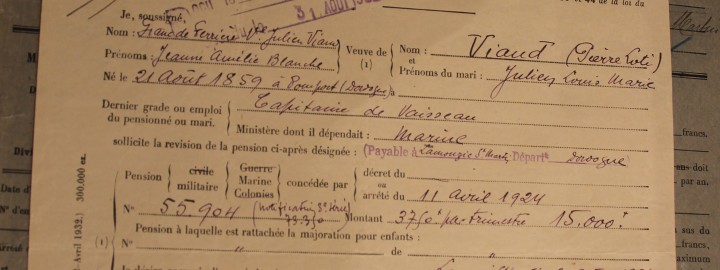 44 de la loi du
31 AOUT
Je, soussigné,
Nom : Franc de Ferrière Vve Julien Viaud
Prénoms : Jeanne Amélie Blanche
Veuve de (1)
Nom : Viaud (Pierre Loti)
et
Prénoms du mari : Julien Louis Marie
Né le 21 Août 1859 à Pomport (Dordogne)
Dernier grade ou emploi du pensionné ou mari. Capitaine de Vaisseau
Ministère dont il dépendait : Marine
francs.
sollicite la revision de la pension ci-après désignée : (Payable à Lamonzie St Martin Départt Dordogne
Pension civile militaire Guerre Marine Colonies concédée par
décret du
ou
arrêté du 11 avril 1924
N° 55.904 (notification 3e série 79.350) Montant 3750f par trimestre 15.000f
Pension à laquelle est rattachée la majoration pour enfants :
(1) N° " de "
Avril 1932.) 300.000 ex.
francs,
maximum